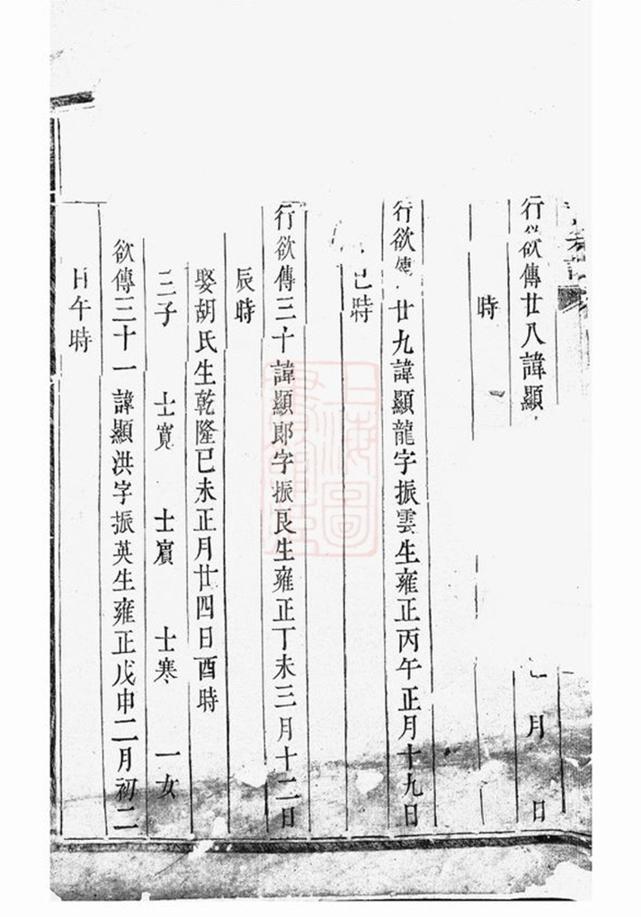 行欲傳廿八諱顯 月 日
時
行欲傳廿九諱顯龍字振雲生雍正丙午正月十九日
巳時
行欲傳三十諱顯郎字振良生雍正丁未三月十二日
辰時
娶胡氏生乾隆己未正月廿四日酉時
三子 士寬 士賔 士寒 一女
欲傳三十一諱顯洪字振英生雍正戊申二月初二
日午時
上海圖